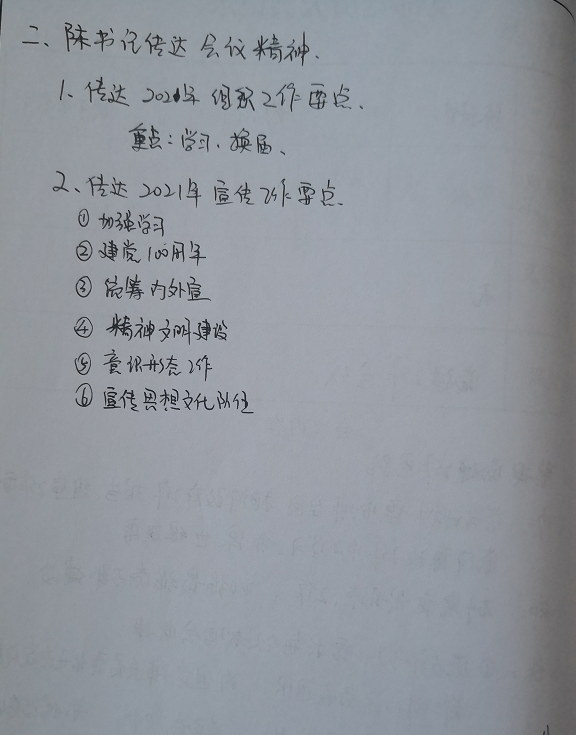 二、陈书记传达会议精神.
1、传达2021年组织工作要点、
重点：学习、换届、
2、传达2021年宣传工作要点、
① 加强学习
② 建党100周年
③ 统筹内外宣
④ 精神文明建设
⑤ 意识形态工作
⑥ 宣传思想文化队伍